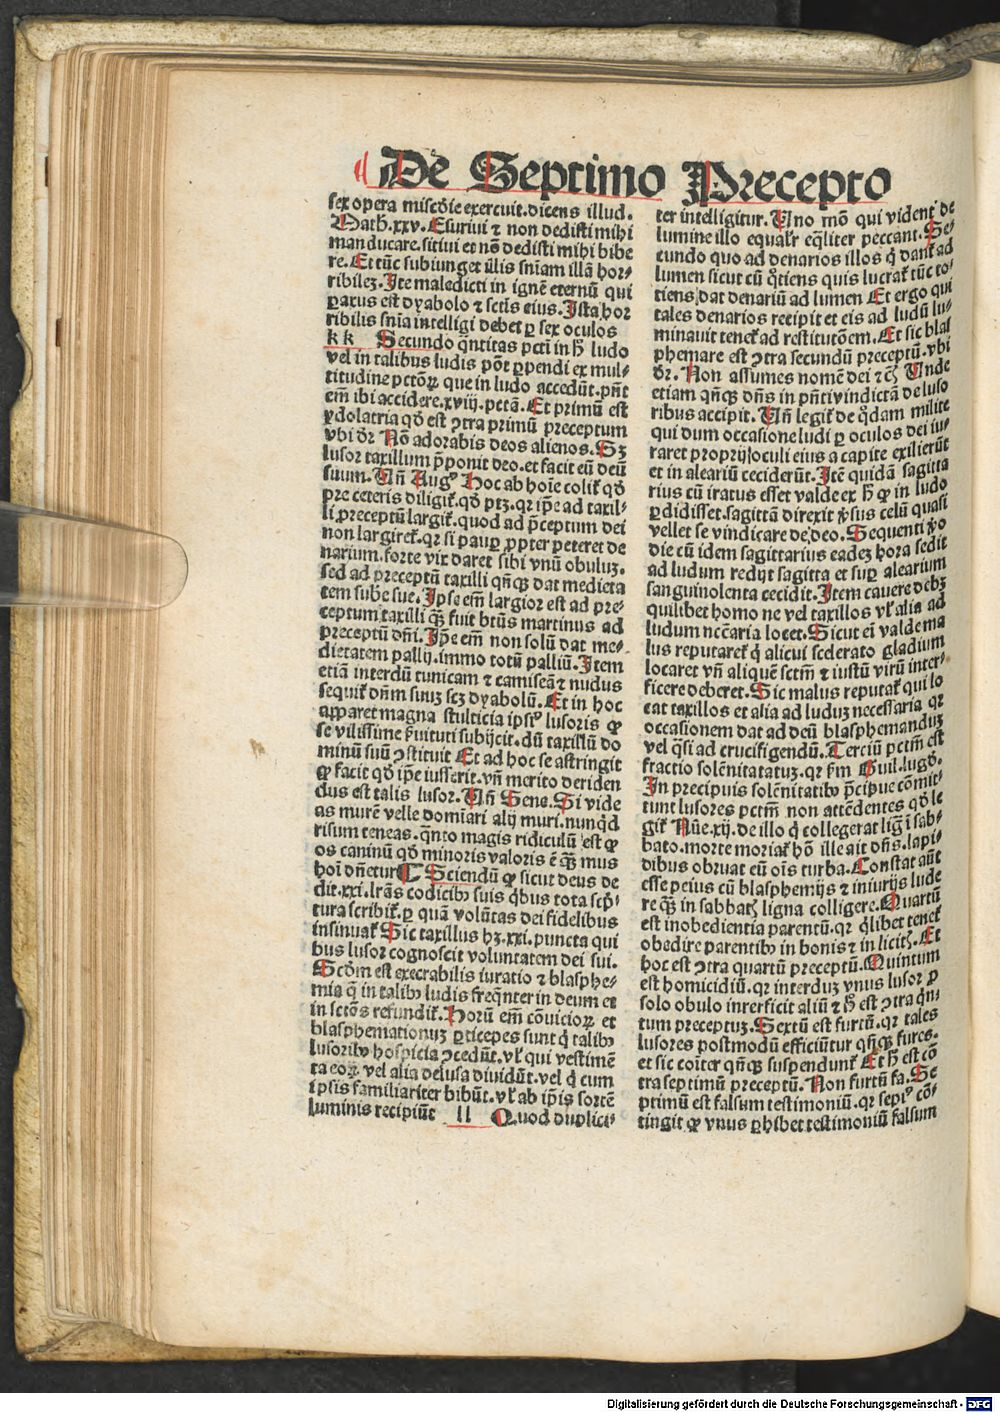 De Septimo Precepto
sex opera miscd̄ie exercuit. dicens illud.
Math. xxv. Esuriui ⁊ non dedisti mihi
manducare. sitiui et nō dedisti mihi bibe
re. Et tūc subiunget illis sn̄iam illā hor-
ribilez. Ite maledicti in ignē eternū qui
paratus est dyabolo ⁊ sctis eius. Ista hor
ribilis sn̄ia intelligi debet ꝑ sex oculos
k k Secundo qn̄titas pctī in ħ ludo
vel in talibus ludis pōt ꝑpendi ex mul-
titudine pctōꝝ que in ludo accedūt. pn̄t
em̄ ibi accidere. xviij. petā. Et primū est
ydolatria qd̄ est ꝯtra primū preceptum
vbi dr̄. Nō adorabis deos alienos. Sꝫ
lusor taxillum p̄ponit deo. et facit eū deū
suum. Vn̄ Augꝰ. Hoc ab hoīe colit̄ qd̄
pre ceteris diligit̄. qd̄ ptꝫ. qr ip̄e ad taxil-
li preceptū largit̄. quod ad p̄ceptum dei
non largiret̄. qr si pauꝑ ꝓpter peteret de
narium. forte vix daret sibi vnū obuluꝫ.
sed ad preceptū taxilli qn̄qꝫ dat medieta
tem sub̄e sue. Ipse em̄ largior est ad pre-
ceptum taxilli qꝫ̄ fuit btūs martinus ad
preceptū dn̄i. Ip̄e em̄ non solū dat me-
dietatem pallij. immo totū palliū. Item
etiā interdū tunicam ⁊ camiseā ⁊ nudus
sequit̄ dn̄m suuꝫ scꝫ dyabolū. Et in hoc
apparet magna stulticia ipsiꝰ lusoris ꝙ
se vilissime ẜuituti subijcit. dū taxillū do
minū suū ꝯstituit Et ad hoc se astringit
ꝙ facit qd̄ ip̄e iusserit. vn̄ merito deriden
dus est talis lusor. Vn̄ Sene. Si vide
as murē velle domiari alij muri. nunqd̄
risum teneas. qn̄to magis ridiculū est ꝙ
os caninū qd̄ minoris valoris ē qꝫ̄ mus
hoī dn̄etur ¶ Sciendū ꝙ sicut deus de
dit. xxi. lr̄as codicibꝰ suis qͥbus tota scpͥ-
tura scribit̄. ꝑ quā volūtas dei fidelibus
insinuat̄ Sic taxillus hꝫ. xxi. puncta qui
bus lusor cognoscit voluntatem dei sui.
Scdm̄ est execrabilis iuratio ⁊ blasphe-
mia q̄ in talibꝰ ludis freqn̄ter in deum et
in sctōs refundit̄. Horū em̄ cōuicioꝝ et
blasphemationuꝫ ꝑticepes sunt qͥ talibꝰ
lusoribꝰ hospicia ꝯcedūt. vl̄ qui vestimē
ta eoꝝ. vel alia delusa diuidūt. vel qͥ cum
ipsis familiariter bibūt. vl̄ ab ip̄is sortē
luminis recipiūt l l Quod duplici-
ter intelligitur. Vno mō qui vident de
lumine illo equalr̄ eq̄liter peccant. Se-
cundo quo ad denarios illos qͥ dant̄ ad
lumen sicut cū qͦtiens quis lucrat̄ tūc to-
tiens dat denariū ad lumen Et ergo qui
tales denarios recipit et eis ad ludū lu-
minauit tenet̄ ad restitutōem. Et sic blas
phemare est ꝯtra secundū preceptū. vbi
dr̄. Non assumes nomē dei ⁊cͣ. Vnde
etiam qn̄qꝫ dn̄s in pn̄ti vindictā de luso
ribus accipit. Vn̄ legit̄ de qͦdam milite
qui dum occasione ludi ꝑ oculos dei iu-
raret proprij oculi eius a capite exilierūt
et in aleariū ceciderūt. Itē quidā sagitta
rius cū iratus esset valde ex ħ ꝙ in ludo
ꝑdidisset. sagittā direxit v̓sus celū quasi
vellet se vindicare de deo. Sequenti v̓o
die cū idem sagittarius eadeꝫ hora sedit
ad ludum redijt sagitta et suꝑ alearium
sanguinolenta cecidit. Item cauere debꝫ
quilibet homo ne vel taxillos vl̄ alia ad
ludum necc̄aria locet. Sicut ei̅ valde ma
lus reputaret̄ qͥ alicui scderato gladium
locaret vn̄ aliquē sctm̄ ⁊ iustū virū inter-
ficere deberet. Sic malus reputat̄ qui lo
cat taxillos et alia ad luduꝫ necessaria qr
occasionem dat ad deū blasphemanduꝫ
vel qͣsi ad crucifigendū. Terciū pctm̄ est
fractio solēnitatatuꝫ. qr ẜm Guil. lugd̄.
In precipuis solēnitatibꝰ p̄cipue cōmit-
tunt lusores pctm̄ non attēdentes qd̄ le
git̄ Nūe. xij. de illo qͥ collegerat liḡ ī sab-
bato. morte moriat̄ hō ille ait dn̄s. lapi-
dibus obruat eū oīs turba. Constat aūt
esse peius cū blasphemijs ⁊ iniurijs lude
re qꝫ̄ in sabbatꝭ ligna colligere. Quartū
est inobedientia parentū. qr qͥlibet tenet̄
obedire parentibꝰ in bonis ⁊ in licitꝭ. Et
hoc est ꝯtra quartū preceptū. Quintum
est homicidiū. qr interduꝫ vnus lusor ꝑ
solo obulo inrerficit aliū ⁊ ħ est ꝯtra qͥn-
tum preceptuꝫ. Sextū est furtū. qr tales
lusores postmodū efficiūtur qn̄qꝫ fures.
et sic coīter qn̄qꝫ suspendunt̄ Et ħ est cō
tra septimū preceptū. Non furtū fa. Se
ptimū est falsum testimoniū. qr sepiꝰ cō-
tingit ꝙ vnus ꝑhibet testimoniū falsum
Digitalisierung gefördert durch die Deutsche Forschungsgemeinschaft - DFG